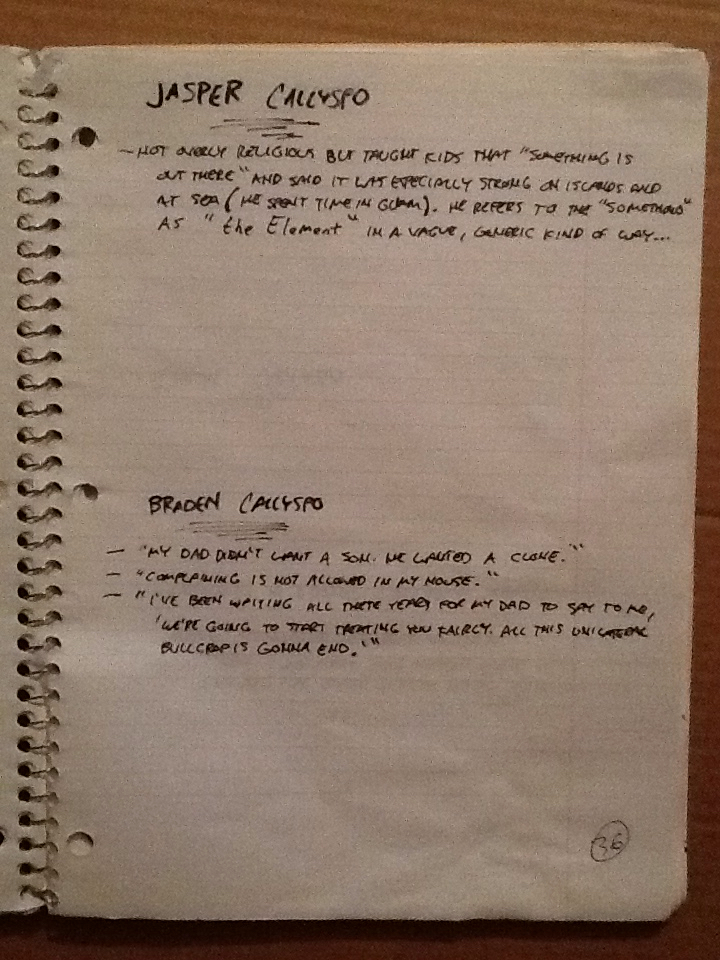 JASPER CALLYSPO
- NOT OVERLY RELIGIOUS BUT TAUGHT KIDS THAT "SOMETHING IS
OUT THERE" AND SAID IT WAS ESPECIALLY STRONG ON ISLANDS AND
AT SEA (HE SPENT TIME IN GUAM). HE REFERS TO THE "SOMETHING"
AS "the Element" IN A VAGUE, GENERIC KIND OF WAY...
BRADEN CALLYSPO
- "MY DAD DIDN'T WANT A SON. HE WANTED A CLONE."
- "COMPLAINING IS NOT ALLOWED IN MY HOUSE."
- "I'VE BEEN WAITING ALL THESE YEARS FOR MY DAD TO SAY TO ME,
'WE'RE GOING TO START TREATING YOU FAIRLY. ALL THIS UNILATERAL
BULLCRAP IS GONNA END.'"
36